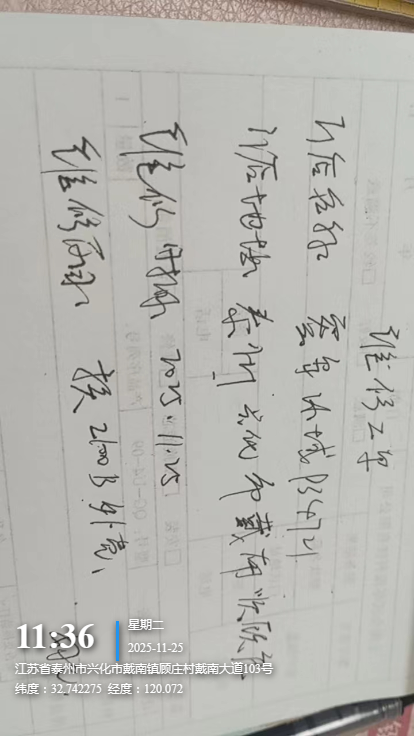 维修工单
门店名称 蜜雪冰城 P34721
门店地址 泰州 兴化市戴南
维修时间 2025.11.25
维修内容 换 2600 外壳、
11:36
星期二
2025-11-25
江苏省泰州市兴化市戴南镇顾庄村戴南大道103号
纬度：32.742275 经度：120.072